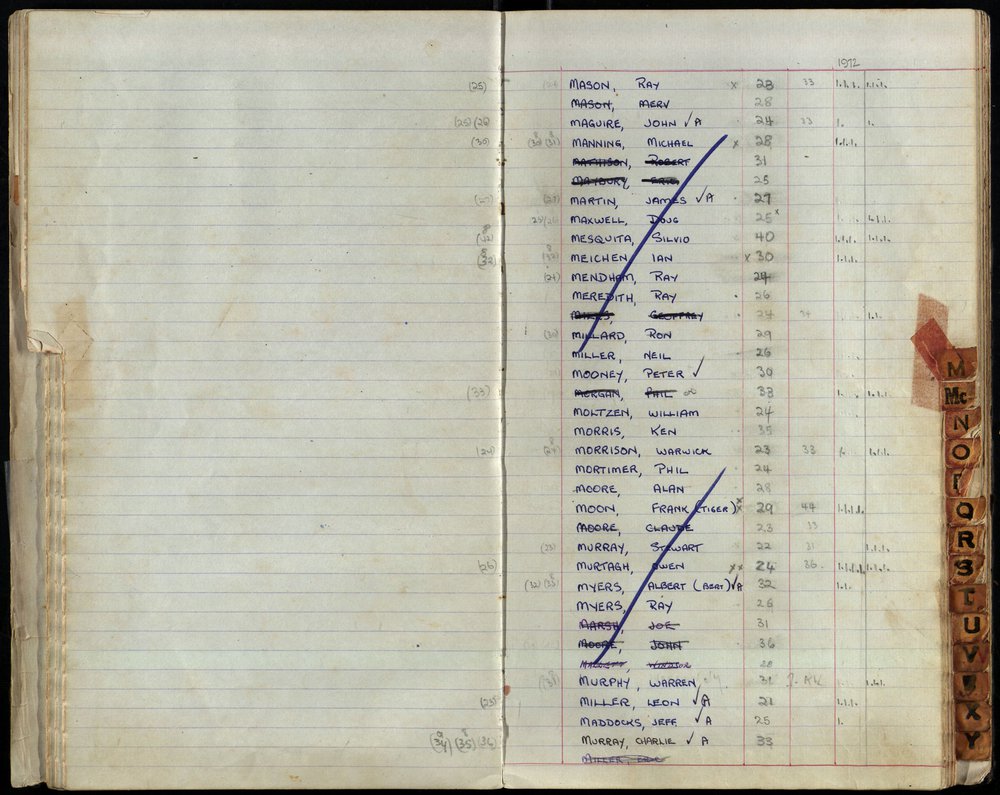 1972
(25) MASON, RAY x 28 33
MASON, MERV 28
(25) (28) MAGUIRE, JOHN ✓ A 24 33
(30) (30) (31) MANNING, MICHAEL x 28
MATHISON, ROBERT 31
MAYBURY, ERIC 25
(27) MARTIN, JAMES ✓ A 27
MAXWELL, DOUG 25 x
(42) MESQUITA, SILVIO 40
(32) (32) MEICHEN, IAN x 30
(24) MENDHAM, RAY 24
MEREDITH, RAY 26
GEOFFREY 24 34
(30) MILLARD, RON 29
MILLER, NEIL 26
MOONEY, PETER ✓ 30
(33) MORGAN, PHIL 33
MOLTZEN, WILLIAM 24
MORRIS, KEN 35
(24) (24) MORRISON, WARWICK 23 33
MORTIMER, PHIL 24
MOORE, ALAN 28
MOON, FRANK (TIGER) x x 29 44
MOORE, CLAUDE 23 33
(23) MURRAY, STEWART 22 31
(26) MURTAGH, OWEN x x 24 36
(32) (33) MYERS, ALBERT (BERT) ✓ A 32
MYERS, RAY 26
MARSH, JOE 31
MOORE, JOHN 36
WINDSOR
MURPHY, WARREN 31
(23) MILLER, LEON ✓ A 21
MADDOCKS, JEFF ✓ A 25
(34) (35) (36) MURRAY, CHARLIE ✓ A 33
MILLER, ERIC
M
Mc
N
O
Q
R
S
T
U
V
X
Y